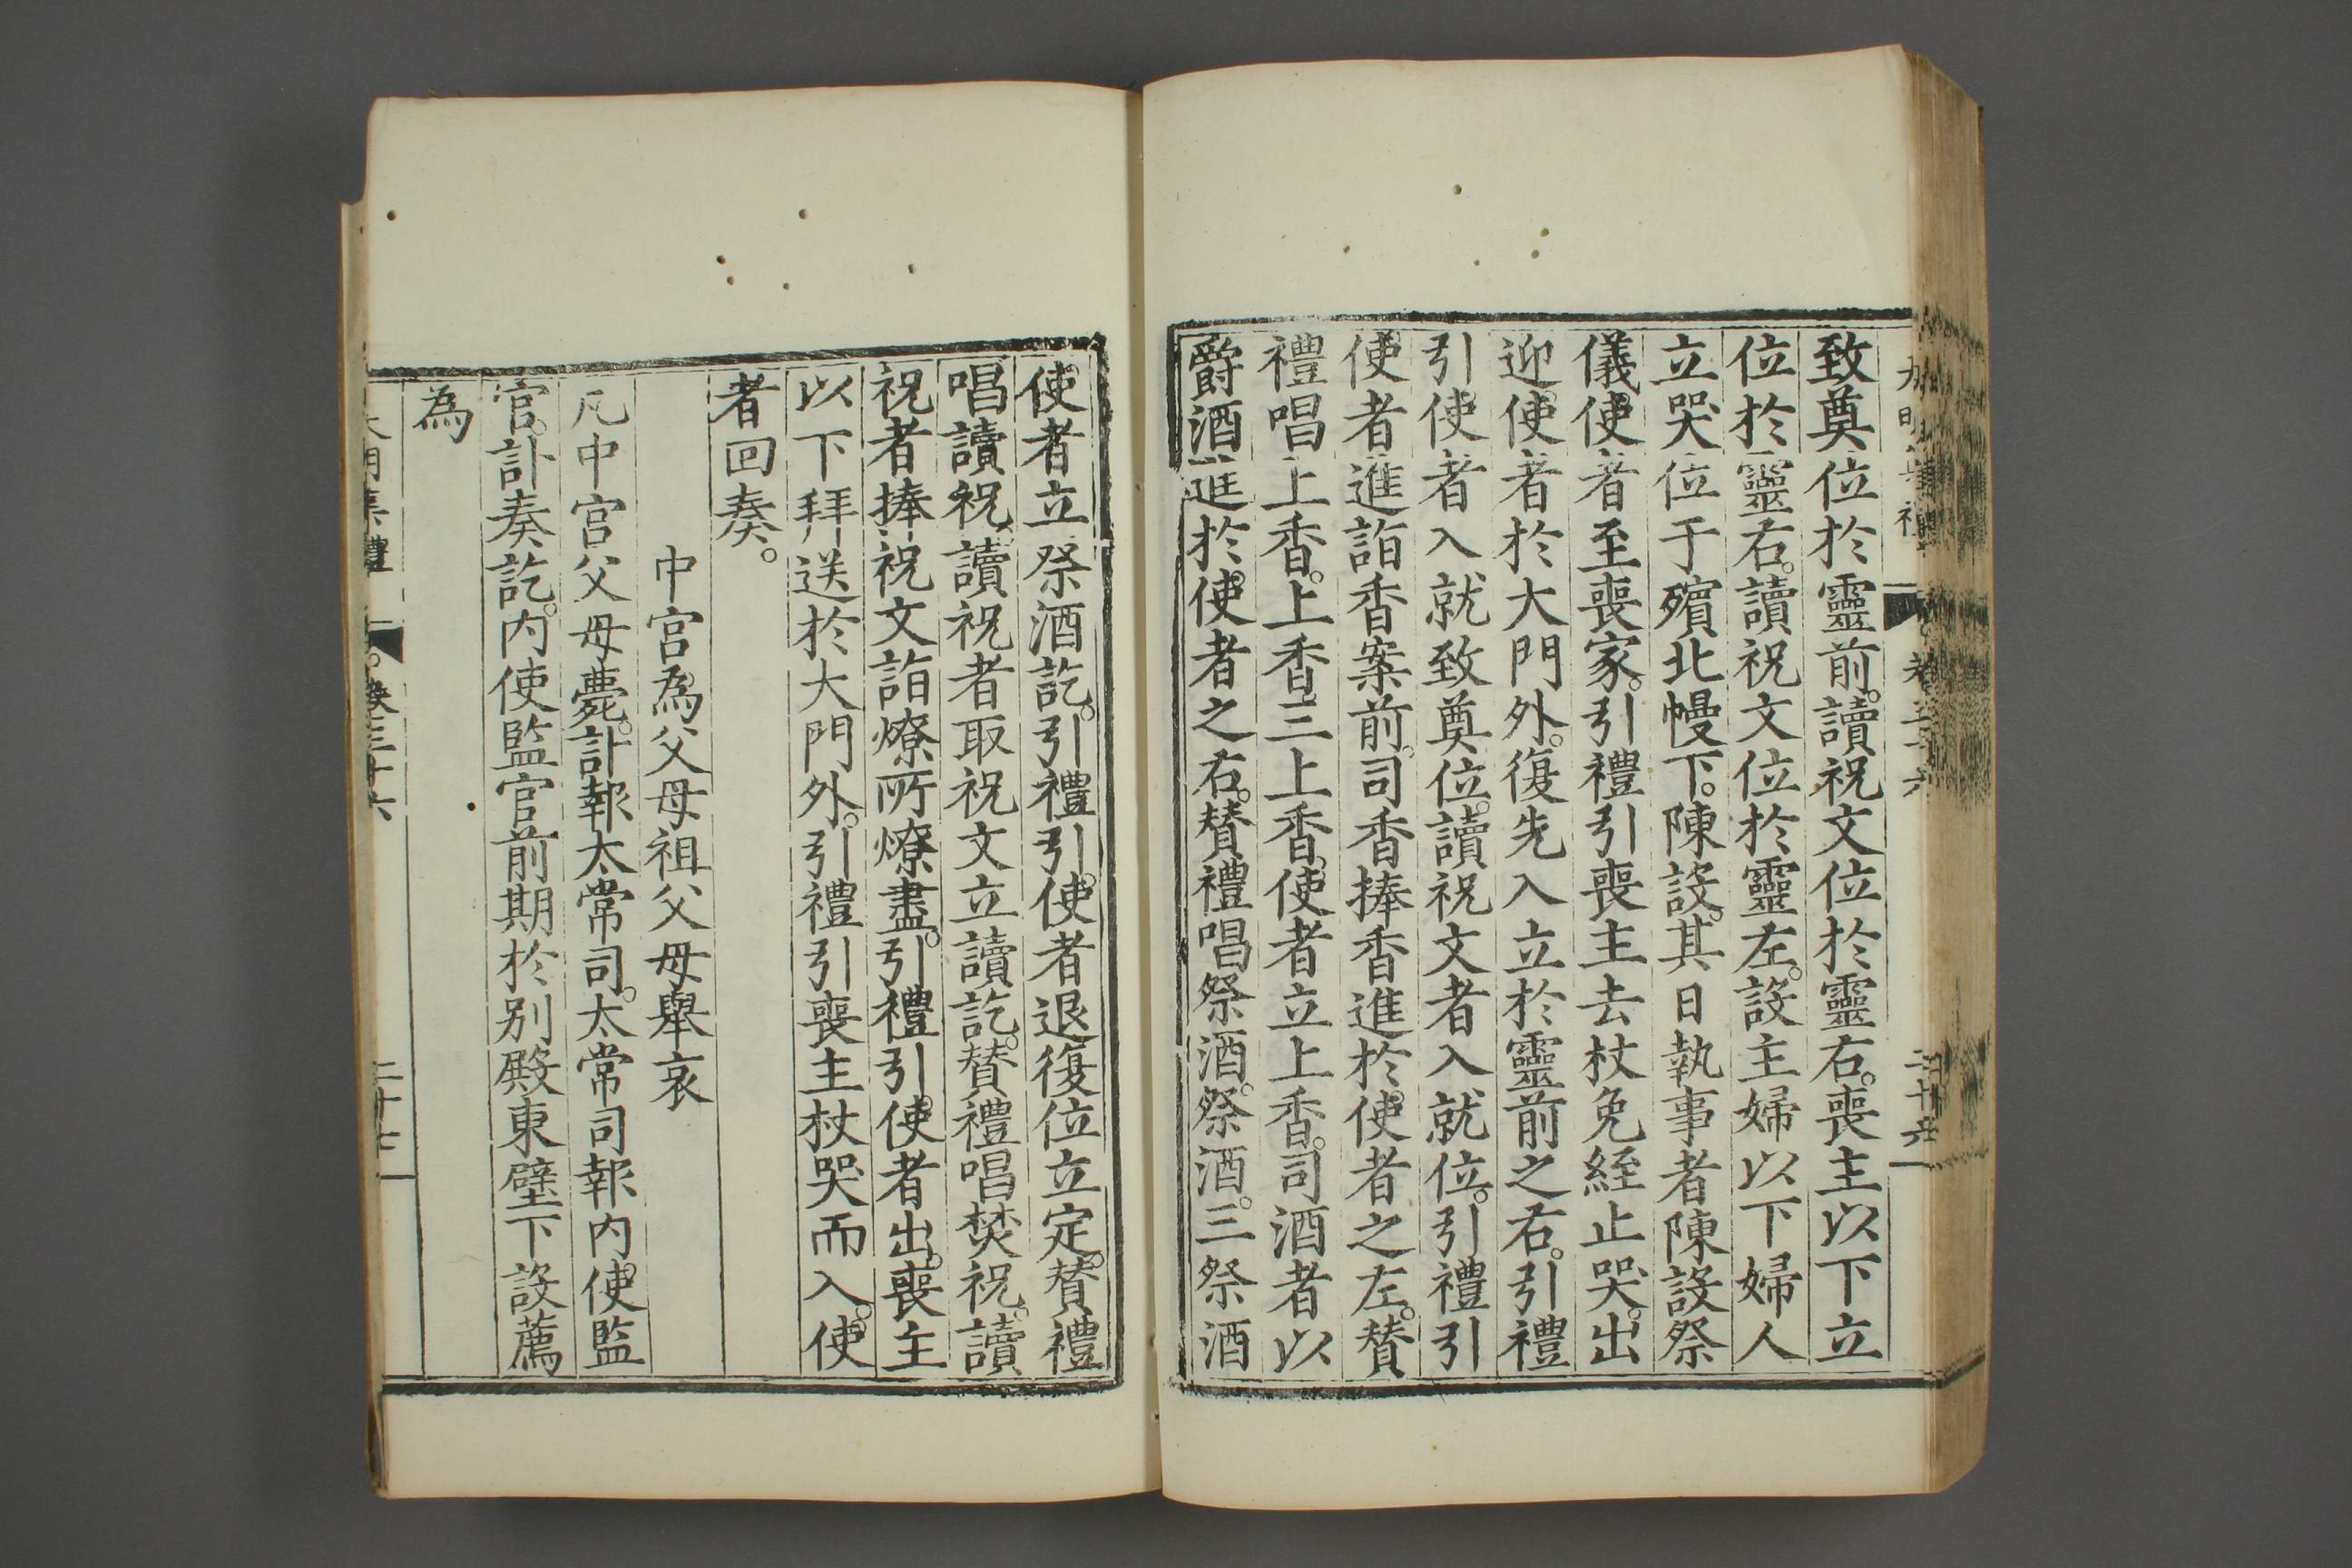 致奠位於靈前。讀祝文位於靈右。喪主以下立
位於靈右。讀祝文位於靈左。設主婦以下婦人
立哭位于殯北幔下。陳設。其日執事者陳設祭
儀。使者至喪家。引禮引喪主去杖免絰止哭。出
迎使者於大門外。復先入立於靈前之右。引禮
引使者入就致奠位。讀祝文者入就位。引禮引
使者進詣香案前。司香捧香進於使者之左。贊
禮唱上香。上香。三上香。使者立上香。司酒者以
爵酒進於使者之右。贊禮唱祭酒。祭酒。三祭酒
使者立祭酒訖。引禮引使者退復位立定。贊禮
唱讀祝。讀祝者取祝文立讀訖。贊禮唱焚祝。讀
祝者捧祝文詣燎所燎盡。引禮引使者出。喪主
以下拜送於大門外。引禮引喪主杖哭而入。使
者回奏。
中宮為父母祖父母舉哀
凡中宮父母薨。訃報太常司。太常司報内使監
官。訃奏訖。内使監官前期於别殿東壁下設薦
為
大明集禮 卷三十六